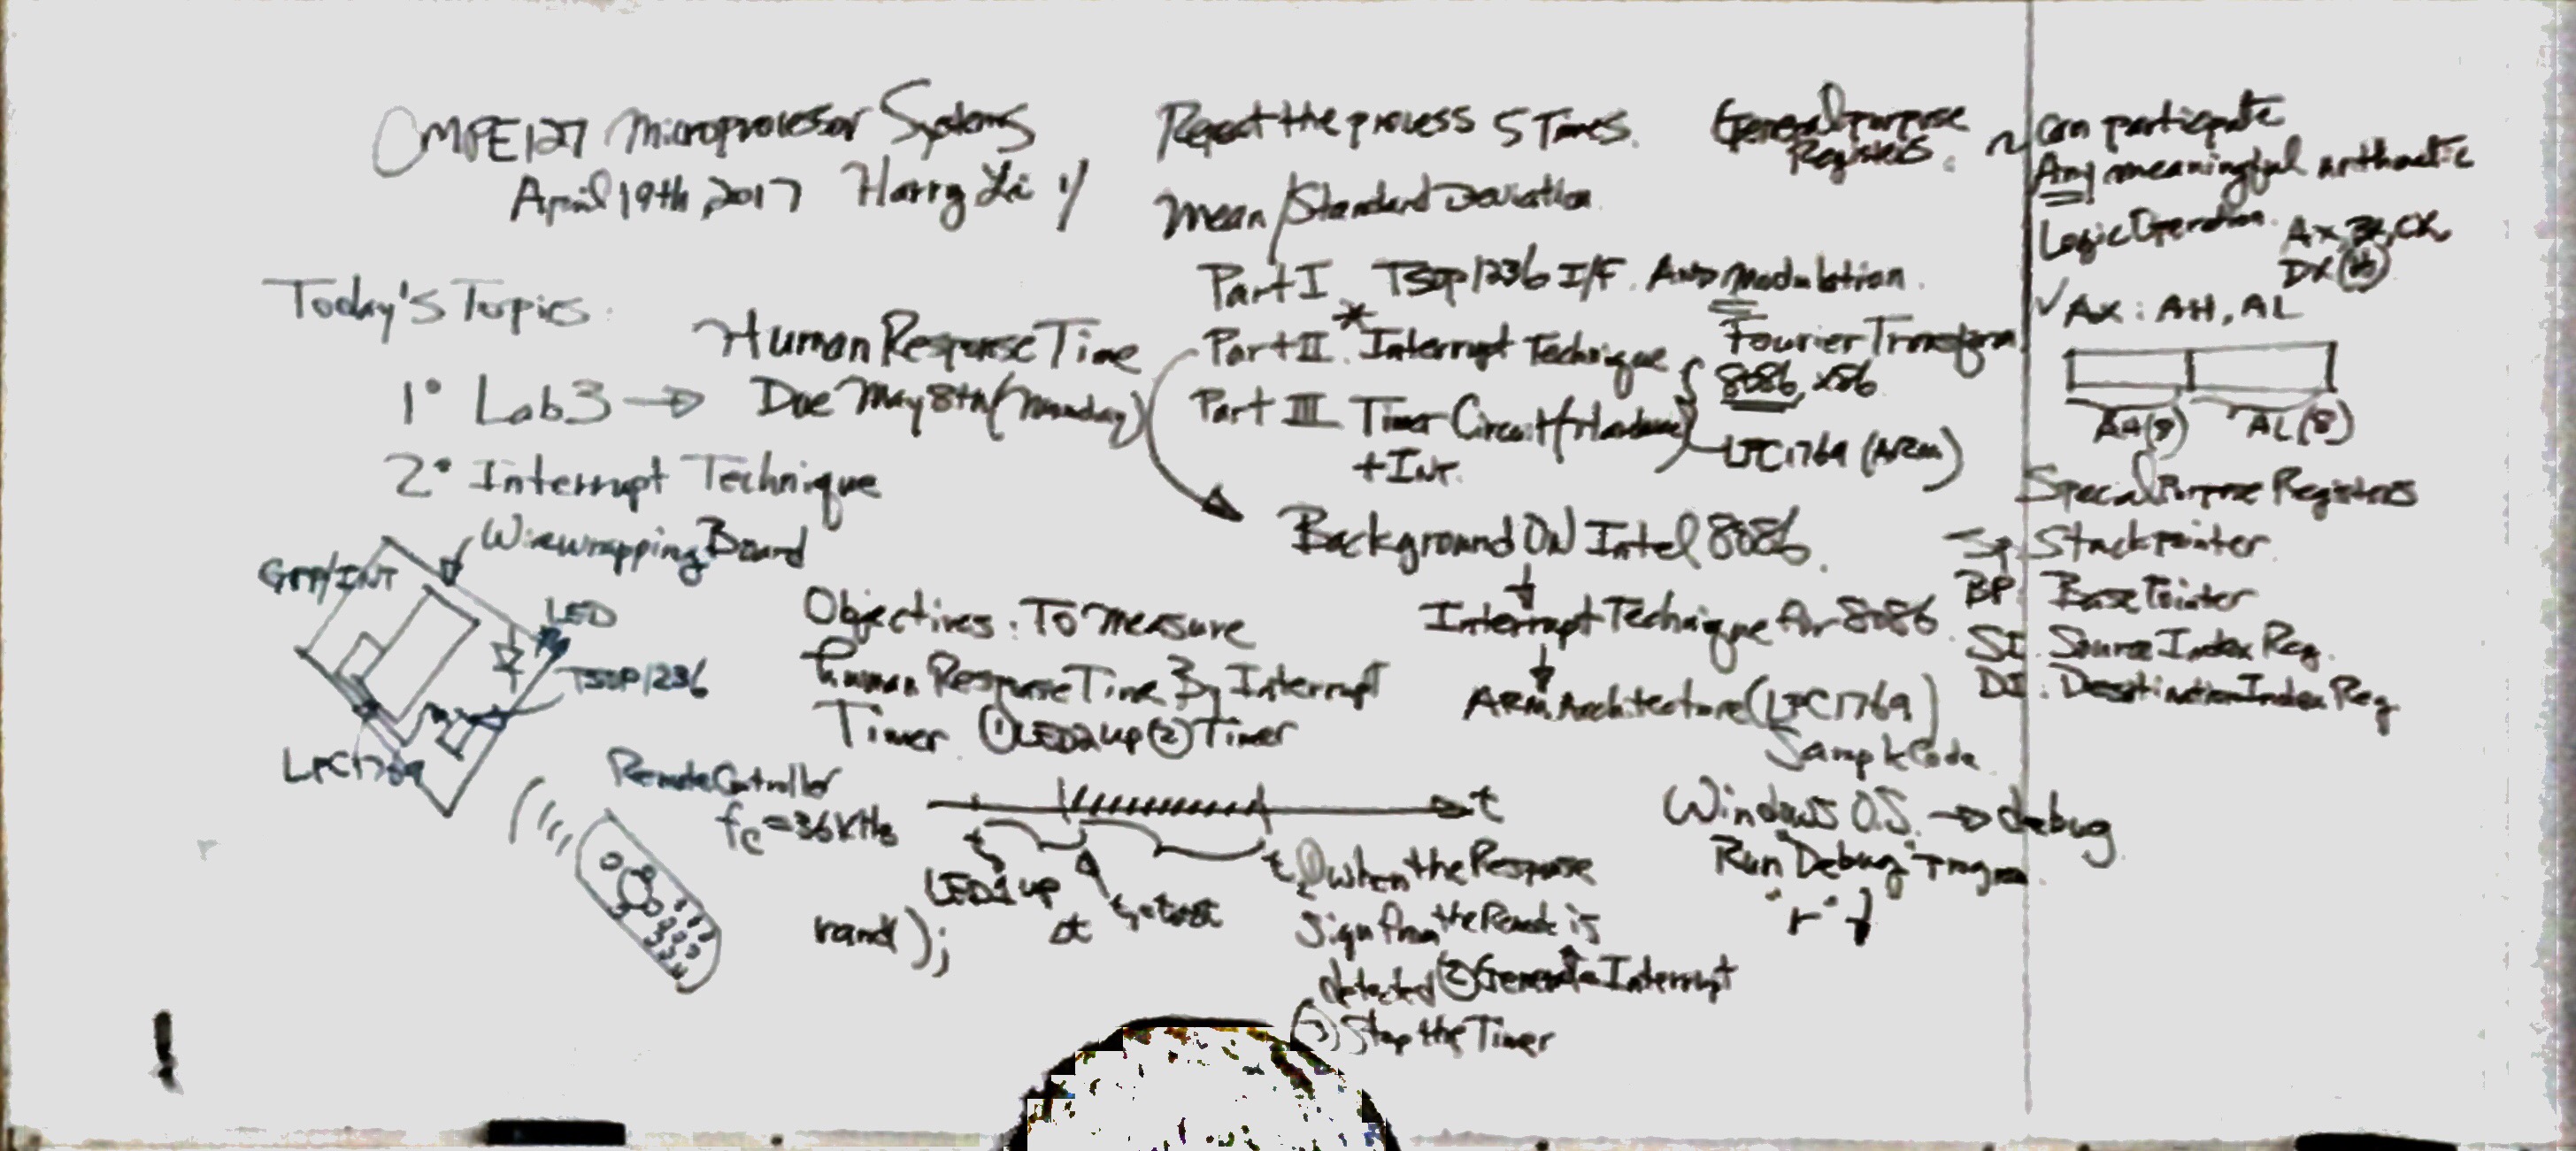 CMPE127 Microprocessor Systems
April 19th, 2017 Harry Li 1/
Today's Topics:
Human Response Time
1° Lab3 → Due May 8th (Monday)
2° Interrupt Technique
Wirewrapping Board
GPP/INT
LED
TSOP1236
LPC1769
Remote Controller
fc=36KHz
Objectives: To measure
human Response Time By Interrupt
Timer ① LED2 up ② Timer
t
LED1 up
Δt
rand();
t2 ① when the Response
Sign from the Remote is
detected ② Generate Interrupt
③ Stop the Timer
Repeat the process 5 Times.
Mean/Standard Deviation
Part I TSOP1236 I/F. And Modulation.
Fourier Transform
Part II. * Interrupt Technique
8086, x86
Part III Timer Circuit (Hardware)
+ INT.
LPC1769 (ARM)
Background ON Intel 8086.
Interrupt Technique for 8086
ARM Architecture (LPC1769)
Sample Code
Windows O.S. → debug
Run "Debug" Program.
"r"
General purpose
Registers. ~ Can participate
Any meaningful arithmetic
Logic Operation. AX, BX, CX,
DX (16)
✓ AX: AH, AL
AH(8) AL(8)
Special Purpose Registers
SP. Stack pointer
BP. Base Pointer
SI. Source Index Reg.
DI. Destination Index Reg